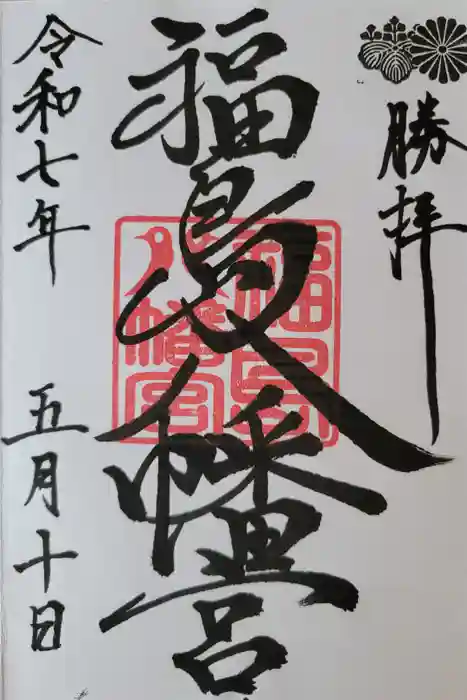 勝拝
福島八幡宮
福島
八幡宮
令和七年 五月十日